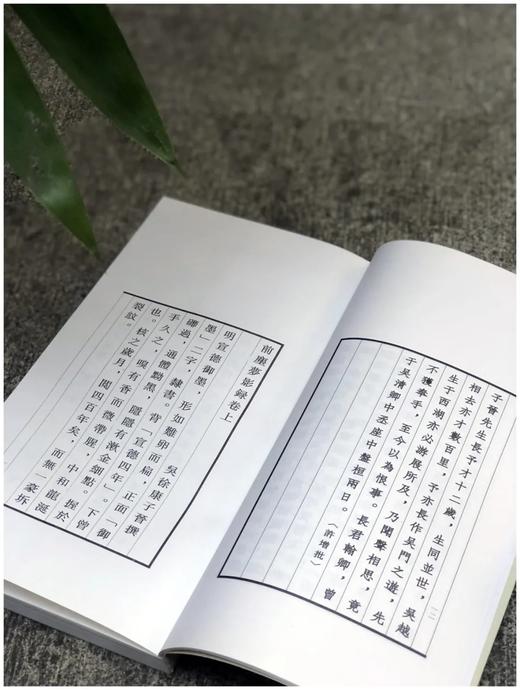 子晉先生長予才十二歲，生同並世，吳越
相去亦才數百里，予亦長作吳門之遊，先
生于西湖亦必游屐所及，乃聞聲相思，竟
不獲奉手，至今以為恨事。長君翰卿，曾
于吳清卿中丞座中盤桓兩日。（許增批）
一二
前塵夢影錄卷上
吳徐康子晉撰
明宣德御墨，形如雞卵而扁，正面「御
墨」二字，隸書。背「宣德四年」。下曾
過，通體黝黑，隱隱有漱金細點。握於
手久之，嗅有香而微帶腥，中和龍涎
也。核之歲月，閱四百年矣，而無一豪坼
裂紋。